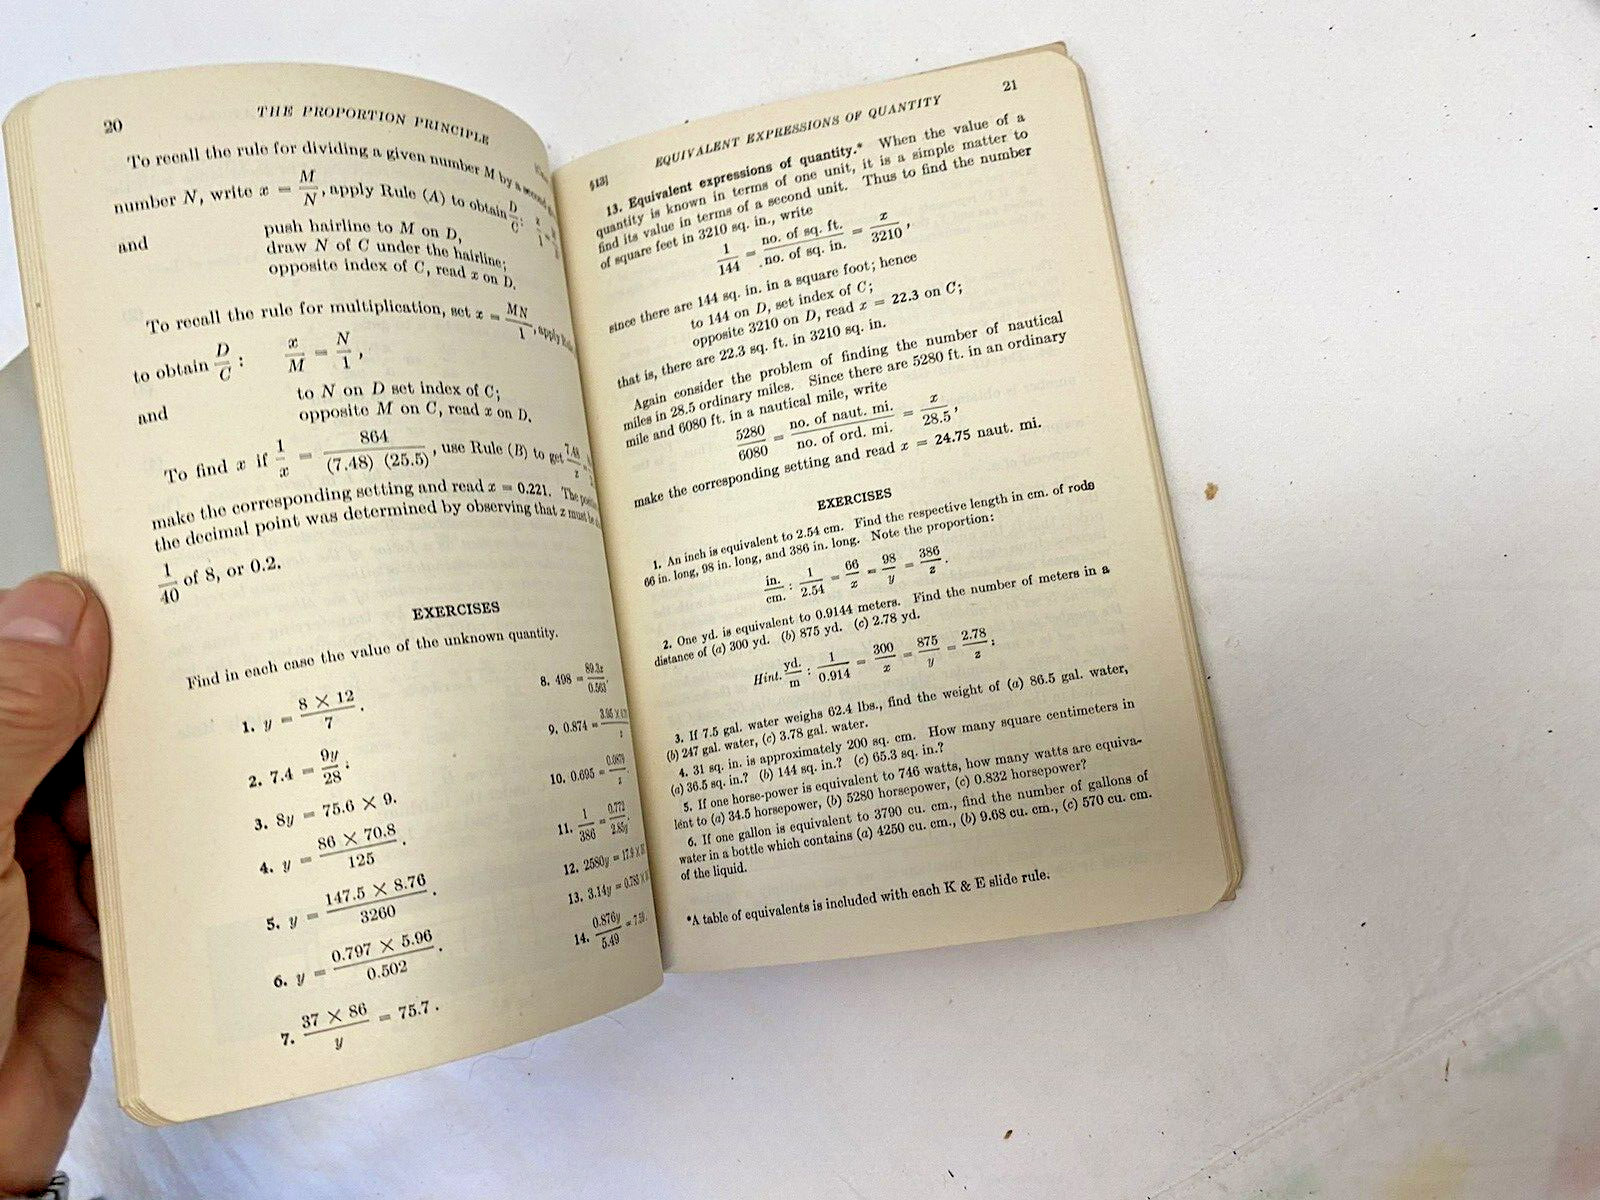 20
THE PROPORTION PRINCIPLE
To recall the rule for dividing a given number M by a second
number N, write x = M/N, apply Rule (A) to obtain D/C:
and
push hairline to M on D,
draw N of C under the hairline;
opposite index of C, read x on D.
To recall the rule for multiplication, set x = MN/1, apply
to obtain D/C: x/M = N/1,
and
to N on D set index of C;
opposite M on C, read x on D.
To find x if 1/x = 864/(7.48) (25.5), use Rule (B) to get
make the corresponding setting and read x = 0.221. The
the decimal point was determined by observing that x must be
1/40 of 8, or 0.2.
EXERCISES
Find in each case the value of the unknown quantity.
1. y = 8 × 12/7.
2. 7.4 = 9y/28.
3. 8y = 75.6 × 9.
4. y = 86 × 70.8/125.
5. y = 147.5 × 8.76/3260.
6. y = 0.797 × 5.96/0.502.
7. 37 × 86/y = 75.7.
8. 498 = 89.3x/0.563.
9. 0.874 =
10. 0.695 = 0.0879/x.
11. 1/386 = 0.772/2.85y.
12. 2580y = 17.9 ×
13. 3.14y = 0.785 ×
14. 0.876y/5.49 = 7.59.
21
EQUIVALENT EXPRESSIONS OF QUANTITY
§13]
13. Equivalent expressions of quantity.* When the value of a
quantity is known in terms of one unit, it is a simple matter to
find its value in terms of a second unit. Thus to find the number
of square feet in 3210 sq. in., write
1/144 = no. of sq. ft./no. of sq. in. = x/3210,
since there are 144 sq. in. in a square foot; hence
to 144 on D, set index of C;
opposite 3210 on D, read x = 22.3 on C;
that is, there are 22.3 sq. ft. in 3210 sq. in.
Again consider the problem of finding the number of nautical
miles in 28.5 ordinary miles. Since there are 5280 ft. in an ordinary
mile and 6080 ft. in a nautical mile, write
5280/6080 = no. of naut. mi./no. of ord. mi. = x/28.5,
make the corresponding setting and read x = 24.75 naut. mi.
EXERCISES
1. An inch is equivalent to 2.54 cm. Find the respective length in cm. of rods
66 in. long, 98 in. long, and 386 in. long. Note the proportion:
in./cm. : 1/2.54 = 66/x = 98/y = 386/z.
2. One yd. is equivalent to 0.9144 meters. Find the number of meters in a
distance of (a) 300 yd. (b) 875 yd. (c) 2.78 yd.
Hint. yd./m : 1/0.914 = 300/x = 875/y = 2.78/z;
3. If 7.5 gal. water weighs 62.4 lbs., find the weight of (a) 86.5 gal. water,
(b) 247 gal. water, (c) 3.78 gal. water.
4. 31 sq. in. is approximately 200 sq. cm. How many square centimeters in
(a) 36.5 sq. in.? (b) 144 sq. in.? (c) 65.3 sq. in.?
5. If one horse-power is equivalent to 746 watts, how many watts are equiva-
lent to (a) 34.5 horsepower, (b) 5280 horsepower, (c) 0.832 horsepower?
6. If one gallon is equivalent to 3790 cu. cm., find the number of gallons of
water in a bottle which contains (a) 4250 cu. cm., (b) 9.68 cu. cm., (c) 570 cu. cm.
of the liquid.
*A table of equivalents is included with each K & E slide rule.